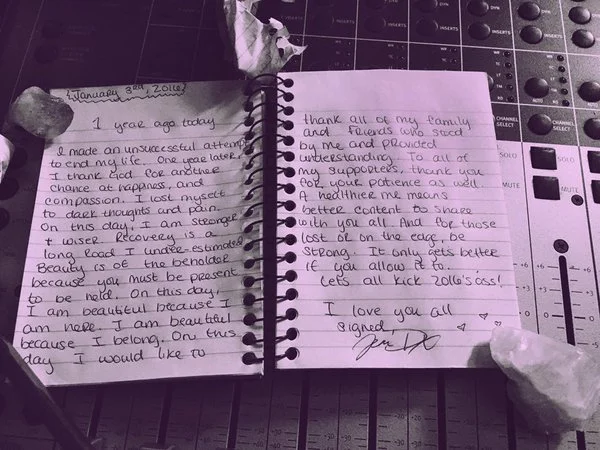 {January 3rd, 2016}
1 year ago today
I made an unsuccessful attempt
to end my life. One year later,
I thank God for another
chance at happiness, and
compassion. I lost myself
to dark thoughts and pain.
On this day, I am stronger
+ wiser. Recovery is a
long road I under-estimated
Beauty is of the beholder
because you must be present
to be held. On this day,
I am beautiful because I
am here. I am beautiful
because I belong. On this
day I would like to
thank all of my family
and friends who stood
by me and provided
understanding. To all of
my supporters, thank you
for your patience as well.
A healthier me means
better content to share
with you all. And for those
lost or on the edge, be
strong. It only gets better
if you allow it to.
Lets all kick 2016's ass!
I love you all
signed,
DYN
INSERTS
DYN
INSERTS
INSERTS
AUTO
CHANNEL
SELECT
CHANNEL
SELECT
SOLO
SOLO
MUTE
MUTE